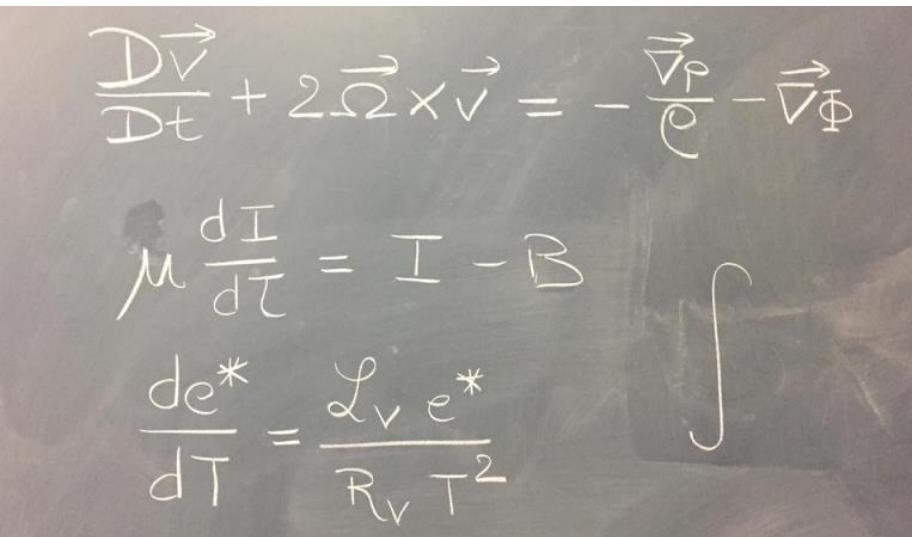 Dv⃗/Dt + 2Ω⃗ × v⃗ = - ∇⃗p/ρ - ∇⃗Φ
μ dI/dτ = I - B
∫
de*/dT = ℒᵥ e* / Rᵥ T²